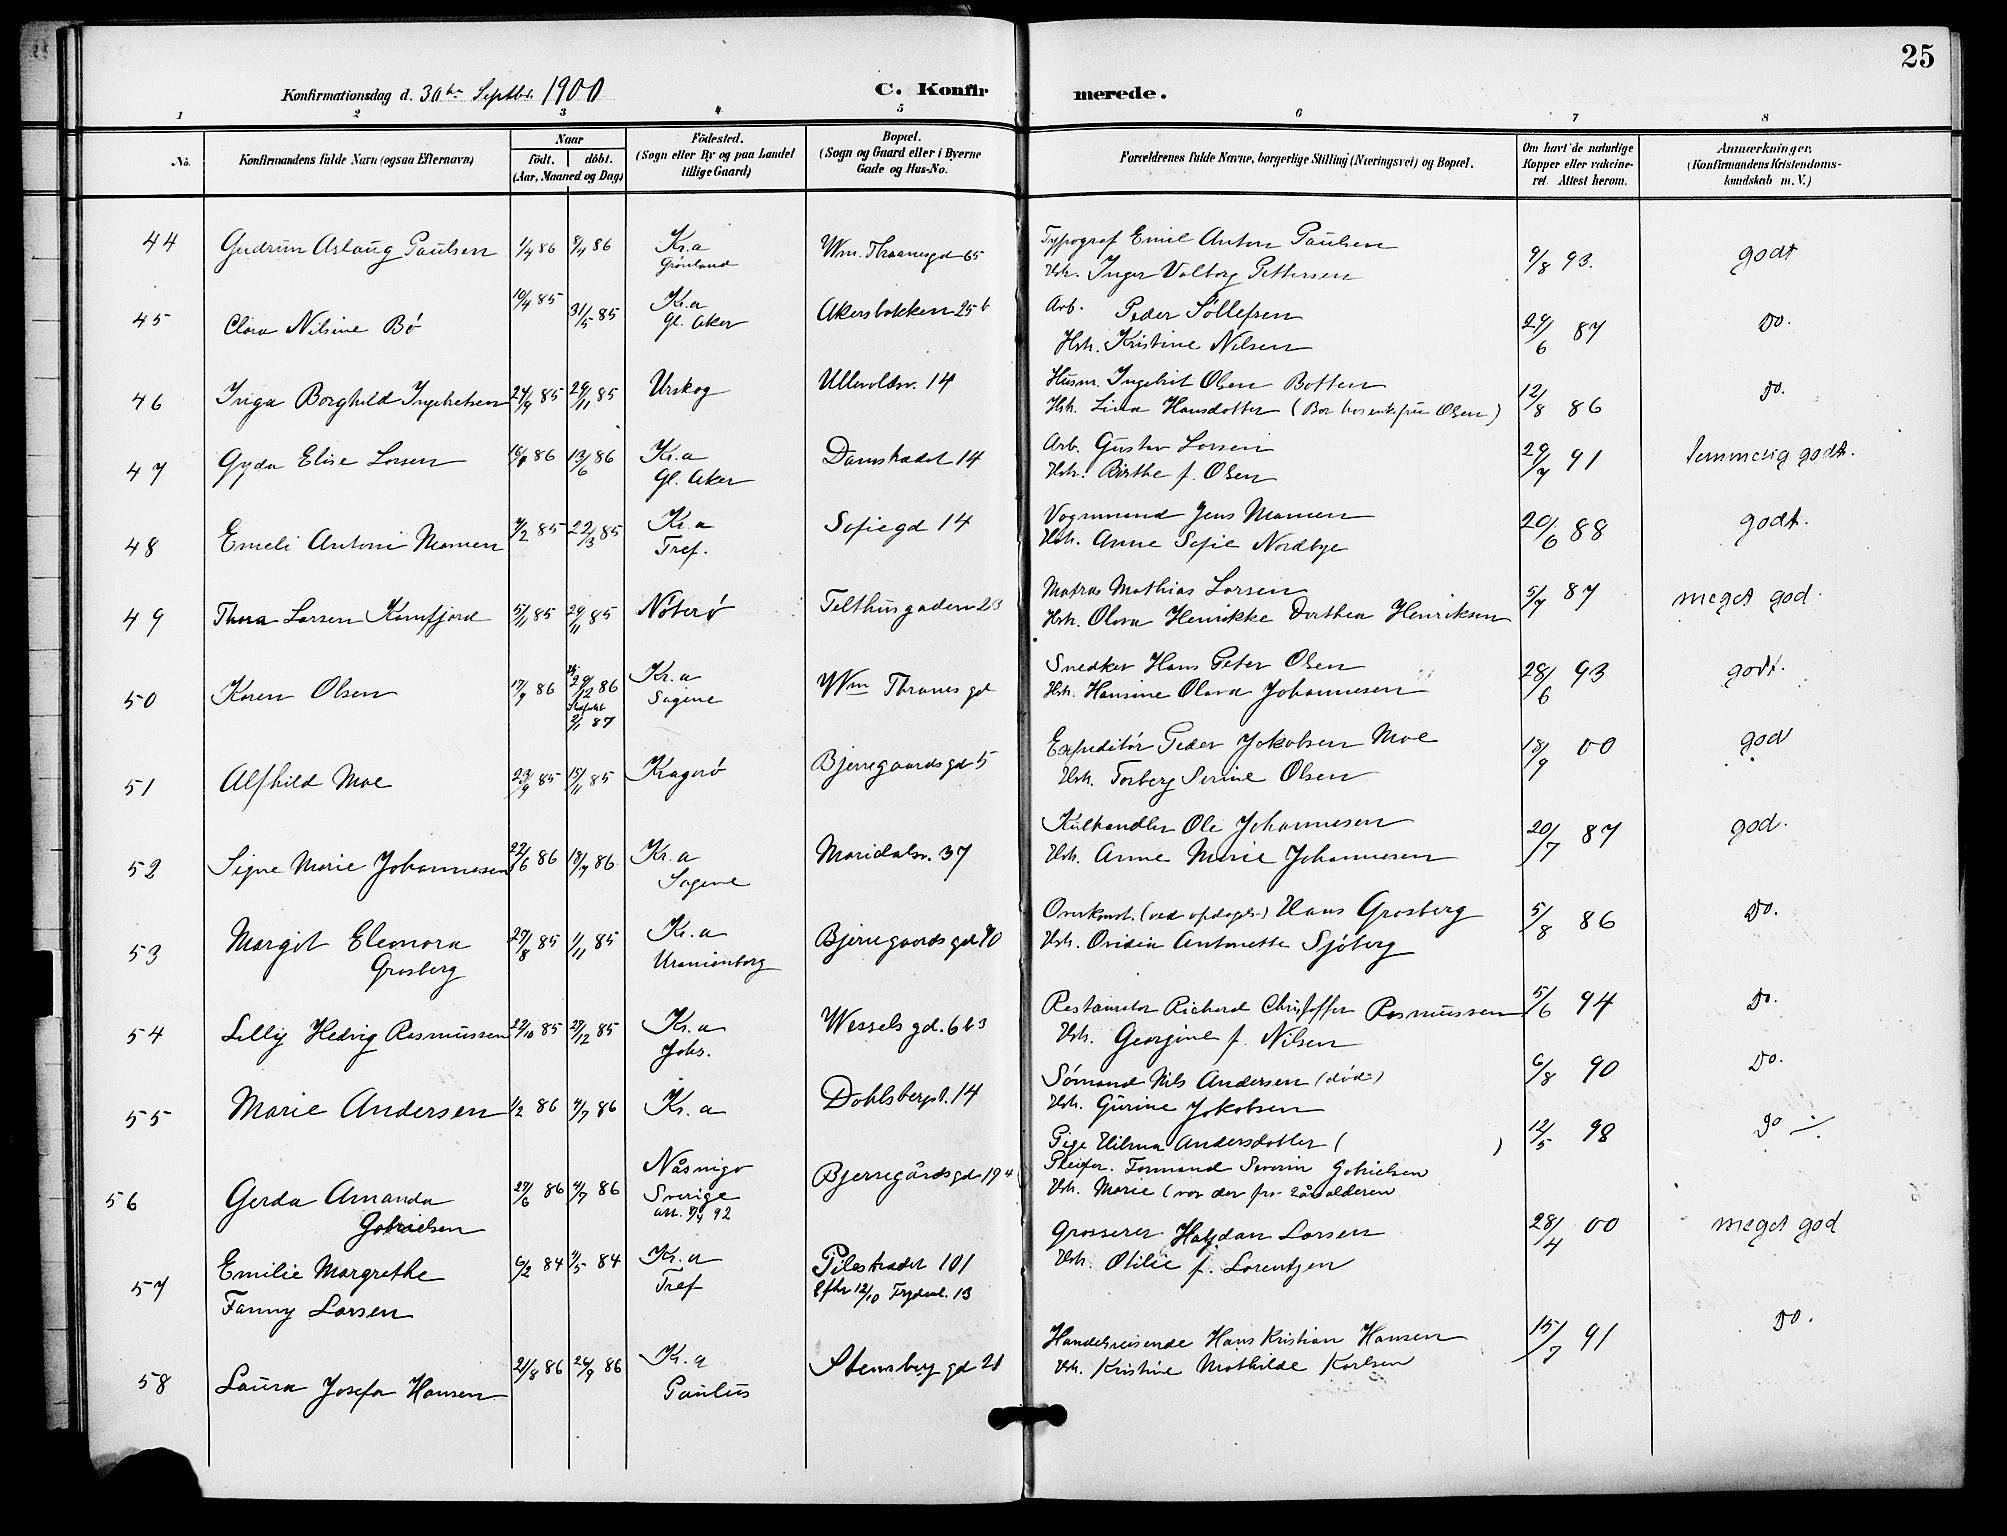 25
Konfirmationsdag d. 30te Septbr. 1900
C. Konfirmerede.
1 2 3 4 5 6 7 8
No.
Konfirmandens fulde Navn (ogsaa Efternavn)
Naar
födt. döbt.
(Aar, Maaned og Dag)
Födested.
(Sogn eller By og paa Landet
tillige Gaard)
Bopæl.
(Sogn og Gaard eller i Byerne
Gade og Hus-No.
Forældrenes fulde Navne, borgerlige Stilling (Næringsvei) og Bopæl.
Om havt de naturlige
Kopper eller vakcine-
ret. Attest herom.
Anmærkninger,
(Konfirmandens Kristendoms-
kundskab m. V.)
44 Gudrun Aslaug Paulsen 1/4 86 8/4 86 Kr.a Grönland Wm. Thranesgd 65
Typograf Emil Anton Paulsen
Hstr. Inger Valborg Pettersen
9/8 93. godt
45 Clara Nilsine Bö 19/4 85 31/5 85 Kr.a Gl. Aker Akersbakken 25 b
Arb. Peder Söllefsen
Hstr. Kristine Nilsen
29/6 87 Do.
46 Inga Borghild Ingebretsen 24/9 85 29/11 85 Urskog Ullevoldsv. 14
Husm. Ingebrit Olsen Botten
Hstr. Lina Hansdatter (Bor hos enkefru Olsen)
12/8 86 Do.
47 Gyda Elise Larsen 86 13/6 86 Kr.a Gl. Aker Damstrædet 14
Arb. Gustav Larsen
Hstr. Birthe f. Olsen
29/7 91 temmelig godt.
48 Emeli Antoni Mamen 7/2 85 22/3 85 Kr.a Tref. Sofiegd 14
Vognmand Jens Mamen
Hstr. Anne Sofie Nordbye
20/6 88 godt.
49 Thora Larsen Kamfjord 5/11 85 29/11 85 Nöterö Telthusgaden 23
Matros Mathias Larsen
Hstr. Olava Henrikke Dorthea Henriksen
5/7 87 meget god.
50 Karen Olsen 17/9 86 29/12 86 2/1 87 Kr.a Sagene Wm Thranes gd
Snedker Hans Peter Olsen
Hstr. Hansine Olava Johannesen
28/6 93 godt.
51 Alfhild Moe 23/9 85 15/11 85 Kragerö Bjerregaards gd 5
Expeditör Peder Jakobsen Moe
Hstr. Torberg Serine Olsen
18/9 00 god
52 Signe Marie Johannesen 22/6 86 18/7 86 Kr.a Sagene Maridalsv. 37
Kulhandler Ole Johannesen
Hstr. Anne Marie Johannesen
20/7 87 god.
53 Margit Eleonora Grosberg 29/8 85 1/11 85 Kr.a Uranienborg Bjerregaards gd 70
Overkonst. (ved opdags.) Hans Grosberg
Hstr. Ovidia Antonette Sjöberg
5/8 86 Do.
54 Lilly Hedvig Rasmussen 22/10 85 27/12 85 Kr.a Johs. Wessels gd. 6 b3
Restauratör Richard Christoffer Rasmussen
Hstr. Georgine f. Nilsen
5/6 94 Do.
55 Marie Andersen 1/2 86 4/7 86 Kr.a Dahlsbergst. 14
Sömand Nils Andersen (död)
Hstr. Gurine Jakobsen
6/8 90 Do.
56 Gerda Amanda Gabrielsen 27/6 86 4/7 86 Sverige Bjerregårdsgd 19 4
Pige Hilma Andersdatter ( )
Pleiefor. Formand Severin Gabrielsen
Hstr. Marie (var der fra 2årsalderen
12/5 98 Do
57 Emilie Margrethe Fanny Larsen 6/2 84 4/5 84 Kr.a Tref Pilestrædet 101
Efter 12/10 Frydenl. 13
Grosserer Halfdan Larsen
Hstr. Otilie f. Lorentzen
28/4 00 meget god
58 Laura Josefa Hansen 21/8 86 26/9 86 Kr.a Paulus Stensberg gd 21
Handelsreisende Hans Kristian Hansen
Hstr. Kristine Mathilde Karlsen
15/7 91 Do.